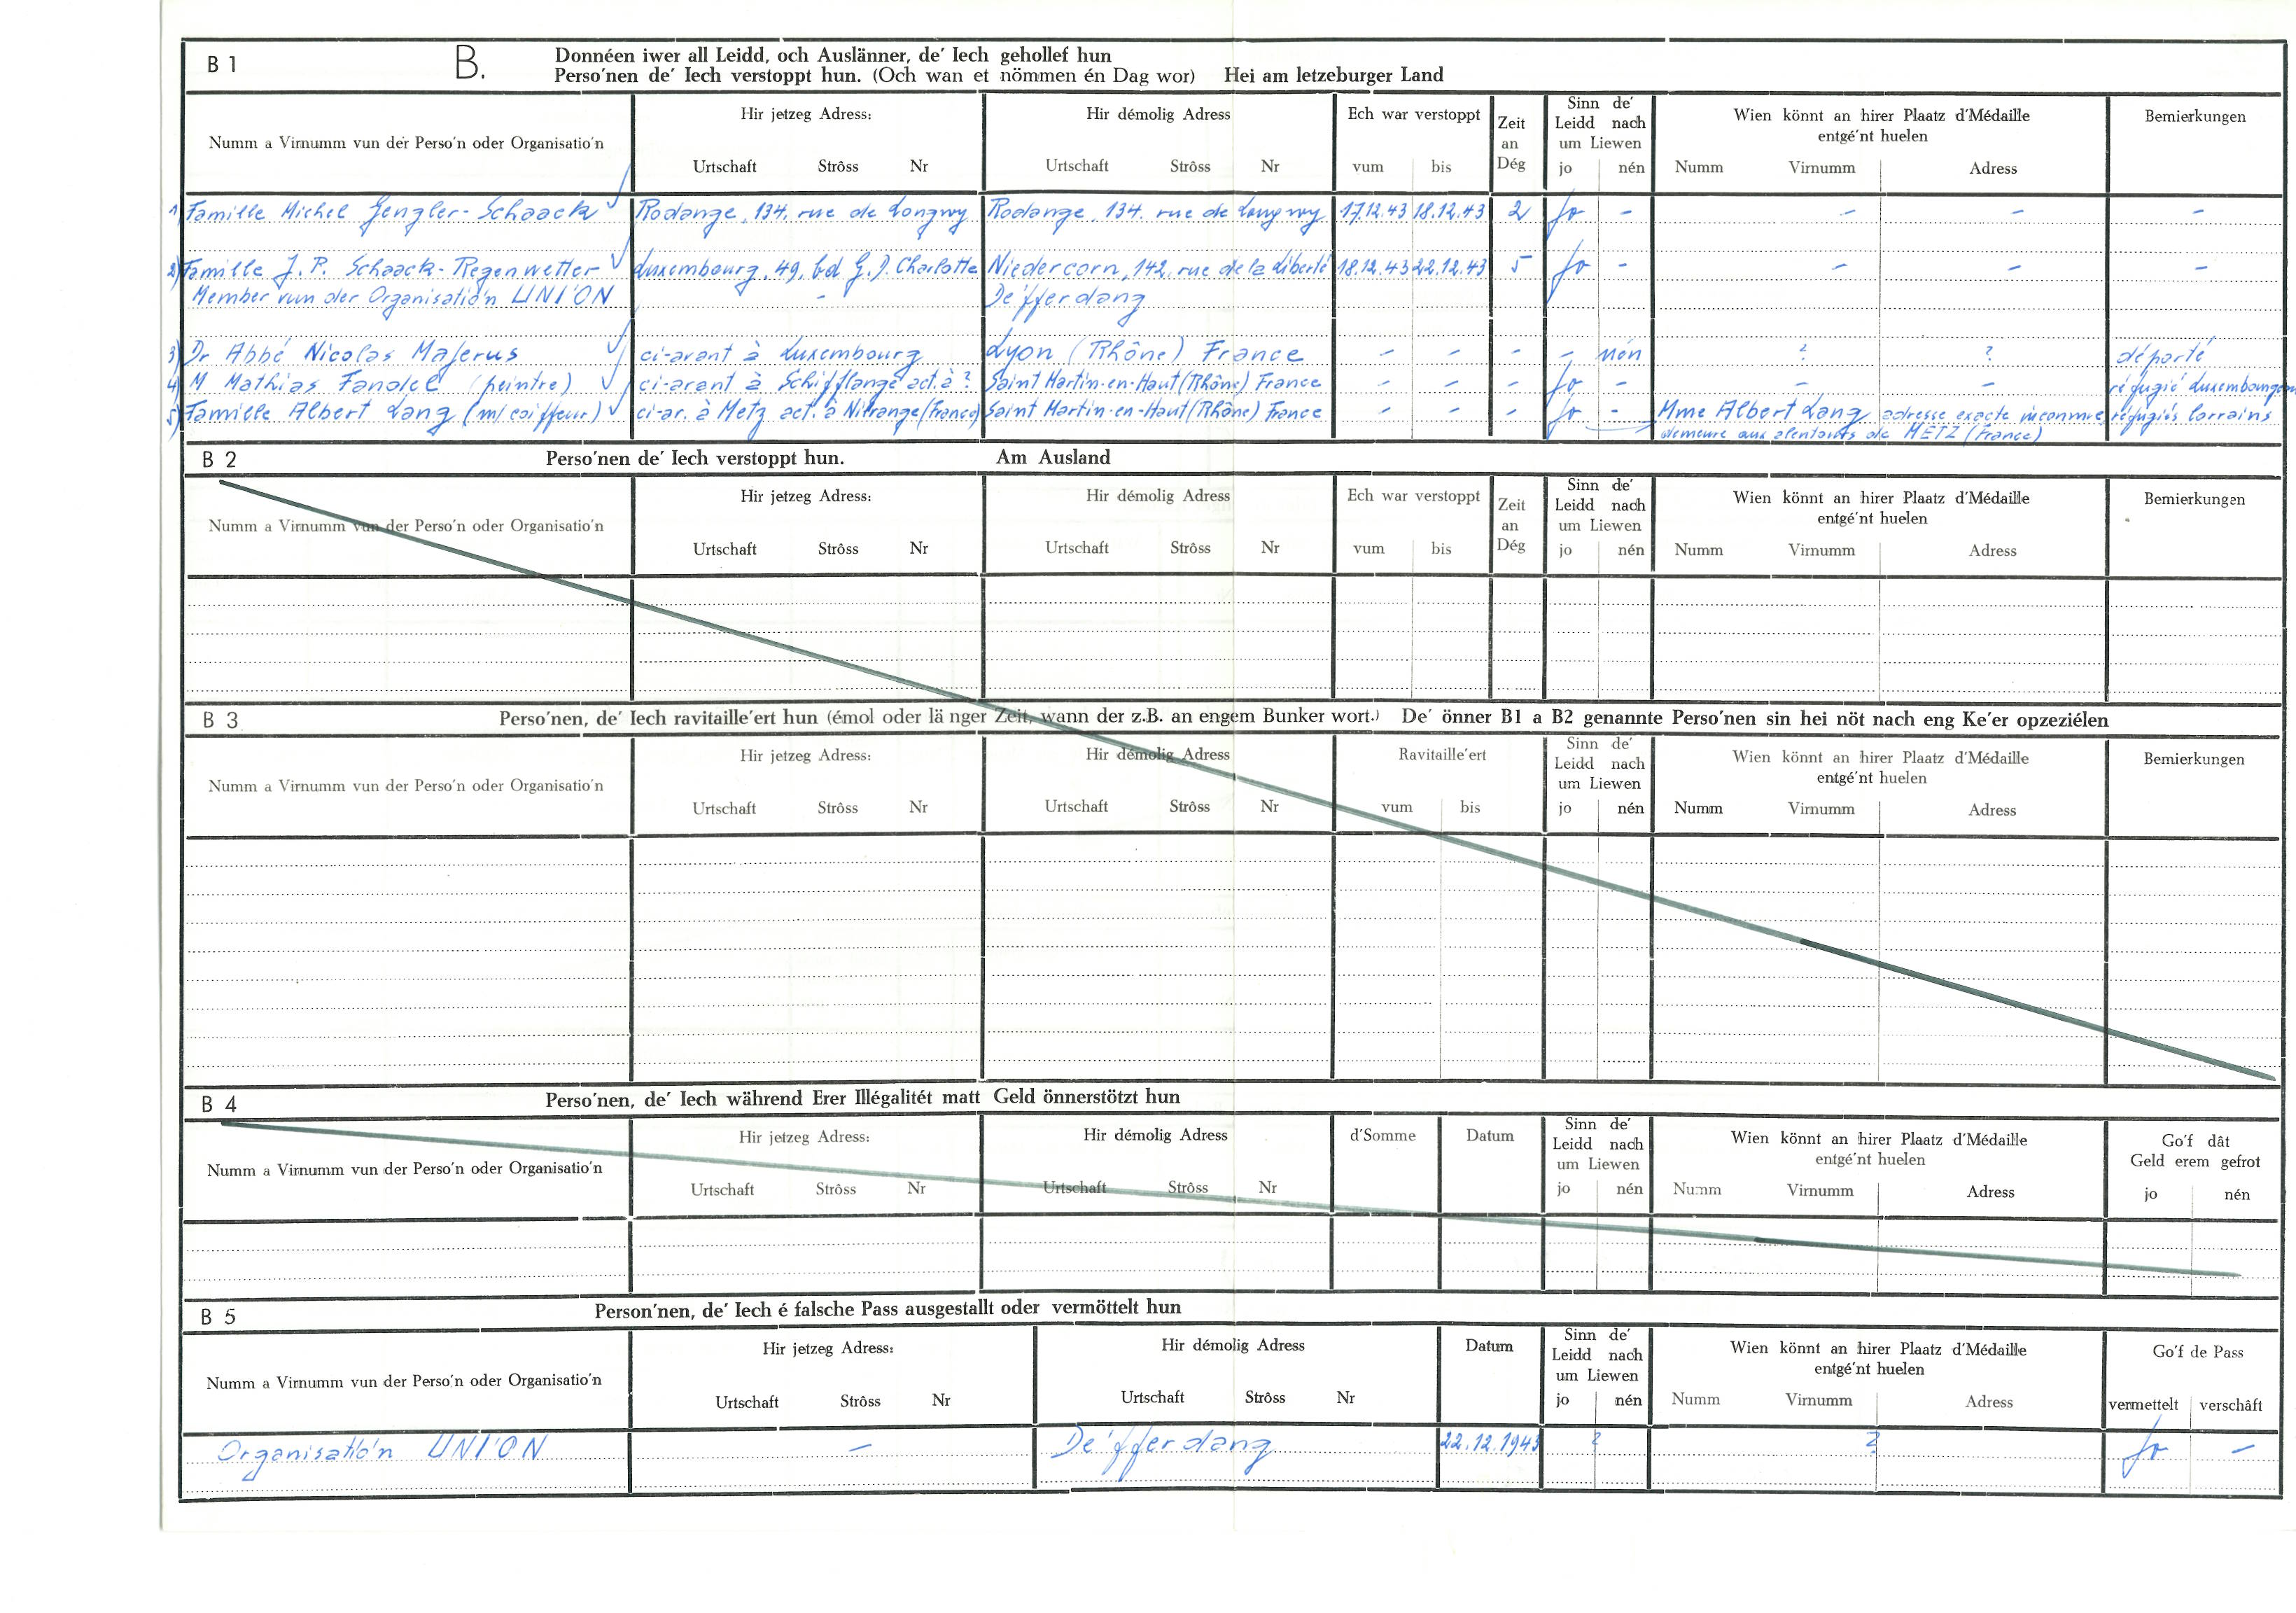 B 1 B. Donnéen iwer all Leidd, och Auslänner, de' Iech gehollef hun
Perso'nen de' Iech verstoppt hun. (Och wan et nömmen én Dag wor) Hei am letzeburger Land
Numm a Virnumm vun der Perso'n oder Organisatio'n
Hir jetzeg Adress:
Urtschaft Strôss Nr
Hir démolig Adress
Urtschaft Strôss Nr
Ech war verstoppt
vum bis
Zeit
an
Dég
Sinn de'
Leidd nach
um Liewen
jo nén
Wien könnt an hirer Plaatz d'Médaille
entgé'nt huelen
Numm Virnumm Adress
Bemierkungen
1) Famille Michel Gengler-Schaack Rodange, 134, rue de Longwy Rodange, 134, rue de Longwy 17.12.43 18.12.43 2 Jo - - - -
2) Famille J.P. Schaack-Regenwetter Luxembourg, 49, bd. G.D. Charlotte Niedercorn, 142, rue de la Liberté 18.12.43 22.12.43 5 Jo - - - -
Member vun der Organisatio'n UNI'ON - De'fferdang
3) Dr Abbé Nicolas Majerus ci-avant à Luxembourg Lyon (Rhône) France - - - - nén ? ? déporté
4) M Mathias Fandel (peintre) ci-avant à Schifflange act. à ? Saint Martin-en-Haut (Rhône) France - - - Jo - - - réfugié Luxembourgeois
5) Famille Albert Lang (m/coiffeur) ci-av. à Metz act. à Nilvange (France) Saint Martin-en-Haut (Rhône) France - - - Jo - Mme Albert Lang adresse exacte inconnue réfugiés lorrains
demeure aux alentours de METZ (France)
B 2 Perso'nen de' Iech verstoppt hun. Am Ausland
Numm a Virnumm vun der Perso'n oder Organisatio'n
Hir jetzeg Adress:
Urtschaft Strôss Nr
Hir démolig Adress
Urtschaft Strôss Nr
Ech war verstoppt
vum bis
Zeit
an
Dég
Sinn de'
Leidd nach
um Liewen
jo nén
Wien könnt an hirer Plaatz d'Médaille
entgé'nt huelen
Numm Virnumm Adress
Bemierkungen
B 3 Perso'nen, de' Iech ravitaille'ert hun (émol oder lä nger Zeit, wann der z.B. an engem Bunker wort.) De' önner B1 a B2 genannte Perso'nen sin hei nöt nach eng Ke'er opzeziélen
Numm a Virnumm vun der Perso'n oder Organisatio'n
Hir jetzeg Adress:
Urtschaft Strôss Nr
Hir démolig Adress
Urtschaft Strôss Nr
Ravitaille'ert
vum bis
Sinn de'
Leidd nach
um Liewen
jo nén
Wien könnt an hirer Plaatz d'Médaille
entgé'nt huelen
Numm Virnumm Adress
Bemierkungen
B 4 Perso'nen, de' Iech während Erer Illégalitét matt Geld önnerstötzt hun
Numm a Virnumm vun der Perso'n oder Organisatio'n
Hir jetzeg Adress:
Urtschaft Strôss Nr
Hir démolig Adress
Urtschaft Strôss Nr
d'Somme
Datum
Sinn de'
Leidd nach
um Liewen
jo nén
Wien könnt an hirer Plaatz d'Médaille
entgé'nt huelen
Numm Virnumm Adress
Go'f dât
Geld erem gefrot
jo nén
B 5 Person'nen, de' Iech é falsche Pass ausgestallt oder vermöttelt hun
Numm a Virnumm vun der Perso'n oder Organisatio'n
Hir jetzeg Adress:
Urtschaft Strôss Nr
Hir démolig Adress
Urtschaft Strôss Nr
Datum
Sinn de'
Leidd nach
um Liewen
jo nén
Wien könnt an hirer Plaatz d'Médaille
entgé'nt huelen
Numm Virnumm Adress
Go'f de Pass
vermettelt verschâft
Organisatio'n UNI'ON - De'fferdang 22.12.1943 ? ? Jo -